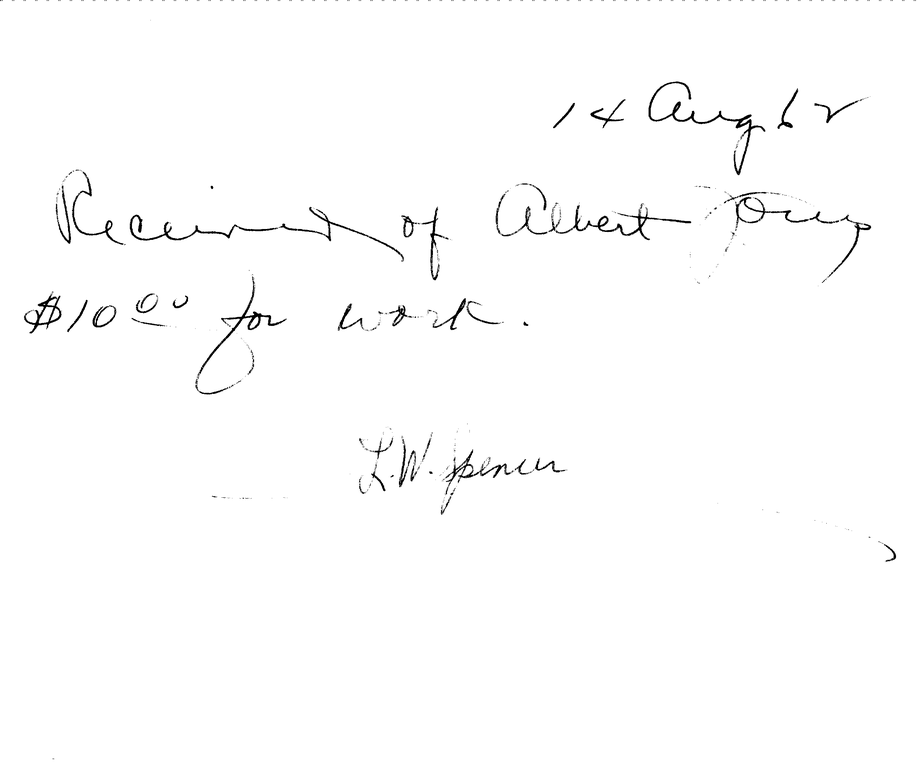 14 Aug 62
Received of Albert Jones
$10.00 for work.
L.W. Spencer